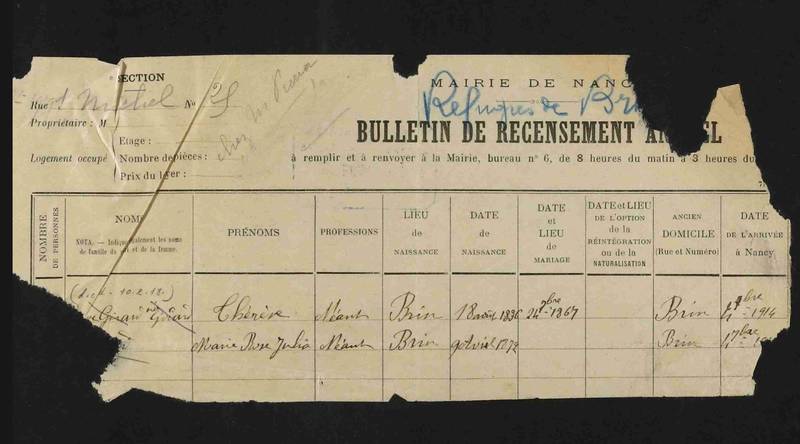 SECTION
MAIRIE DE NANC
Rue St Michel No 25
Refugiés de Bri
Propriétaire : M
chez M
BULLETIN DE RECENSEMENT EL
Etage :
Logement occupé Nombre de pièces :
à remplir et à renvoyer à la Mairie, bureau n° 6, de 8 heures du matin à 3 heures du
Prix du loyer :
NOMBRE DE PERSONNES
NOMS
NOTA. — Indiquer également les noms de famille du et de la femme.
PRÉNOMS
PROFESSIONS
LIEU de NAISSANCE
DATE de NAISSANCE
DATE et LIEU de MARIAGE
DATE et LIEU DE L'OPTION de la RÉINTÉGRATION ou de la NATURALISATION
ANCIEN DOMICILE (Rue et Numéro)
DATE DE L'ARRIVÉE à Nancy
10-2-18
Thérèse Néant Brin 18 1836 24 9bre 1867 Brin 1914
Marie Rose Julia Néant Brin Brin